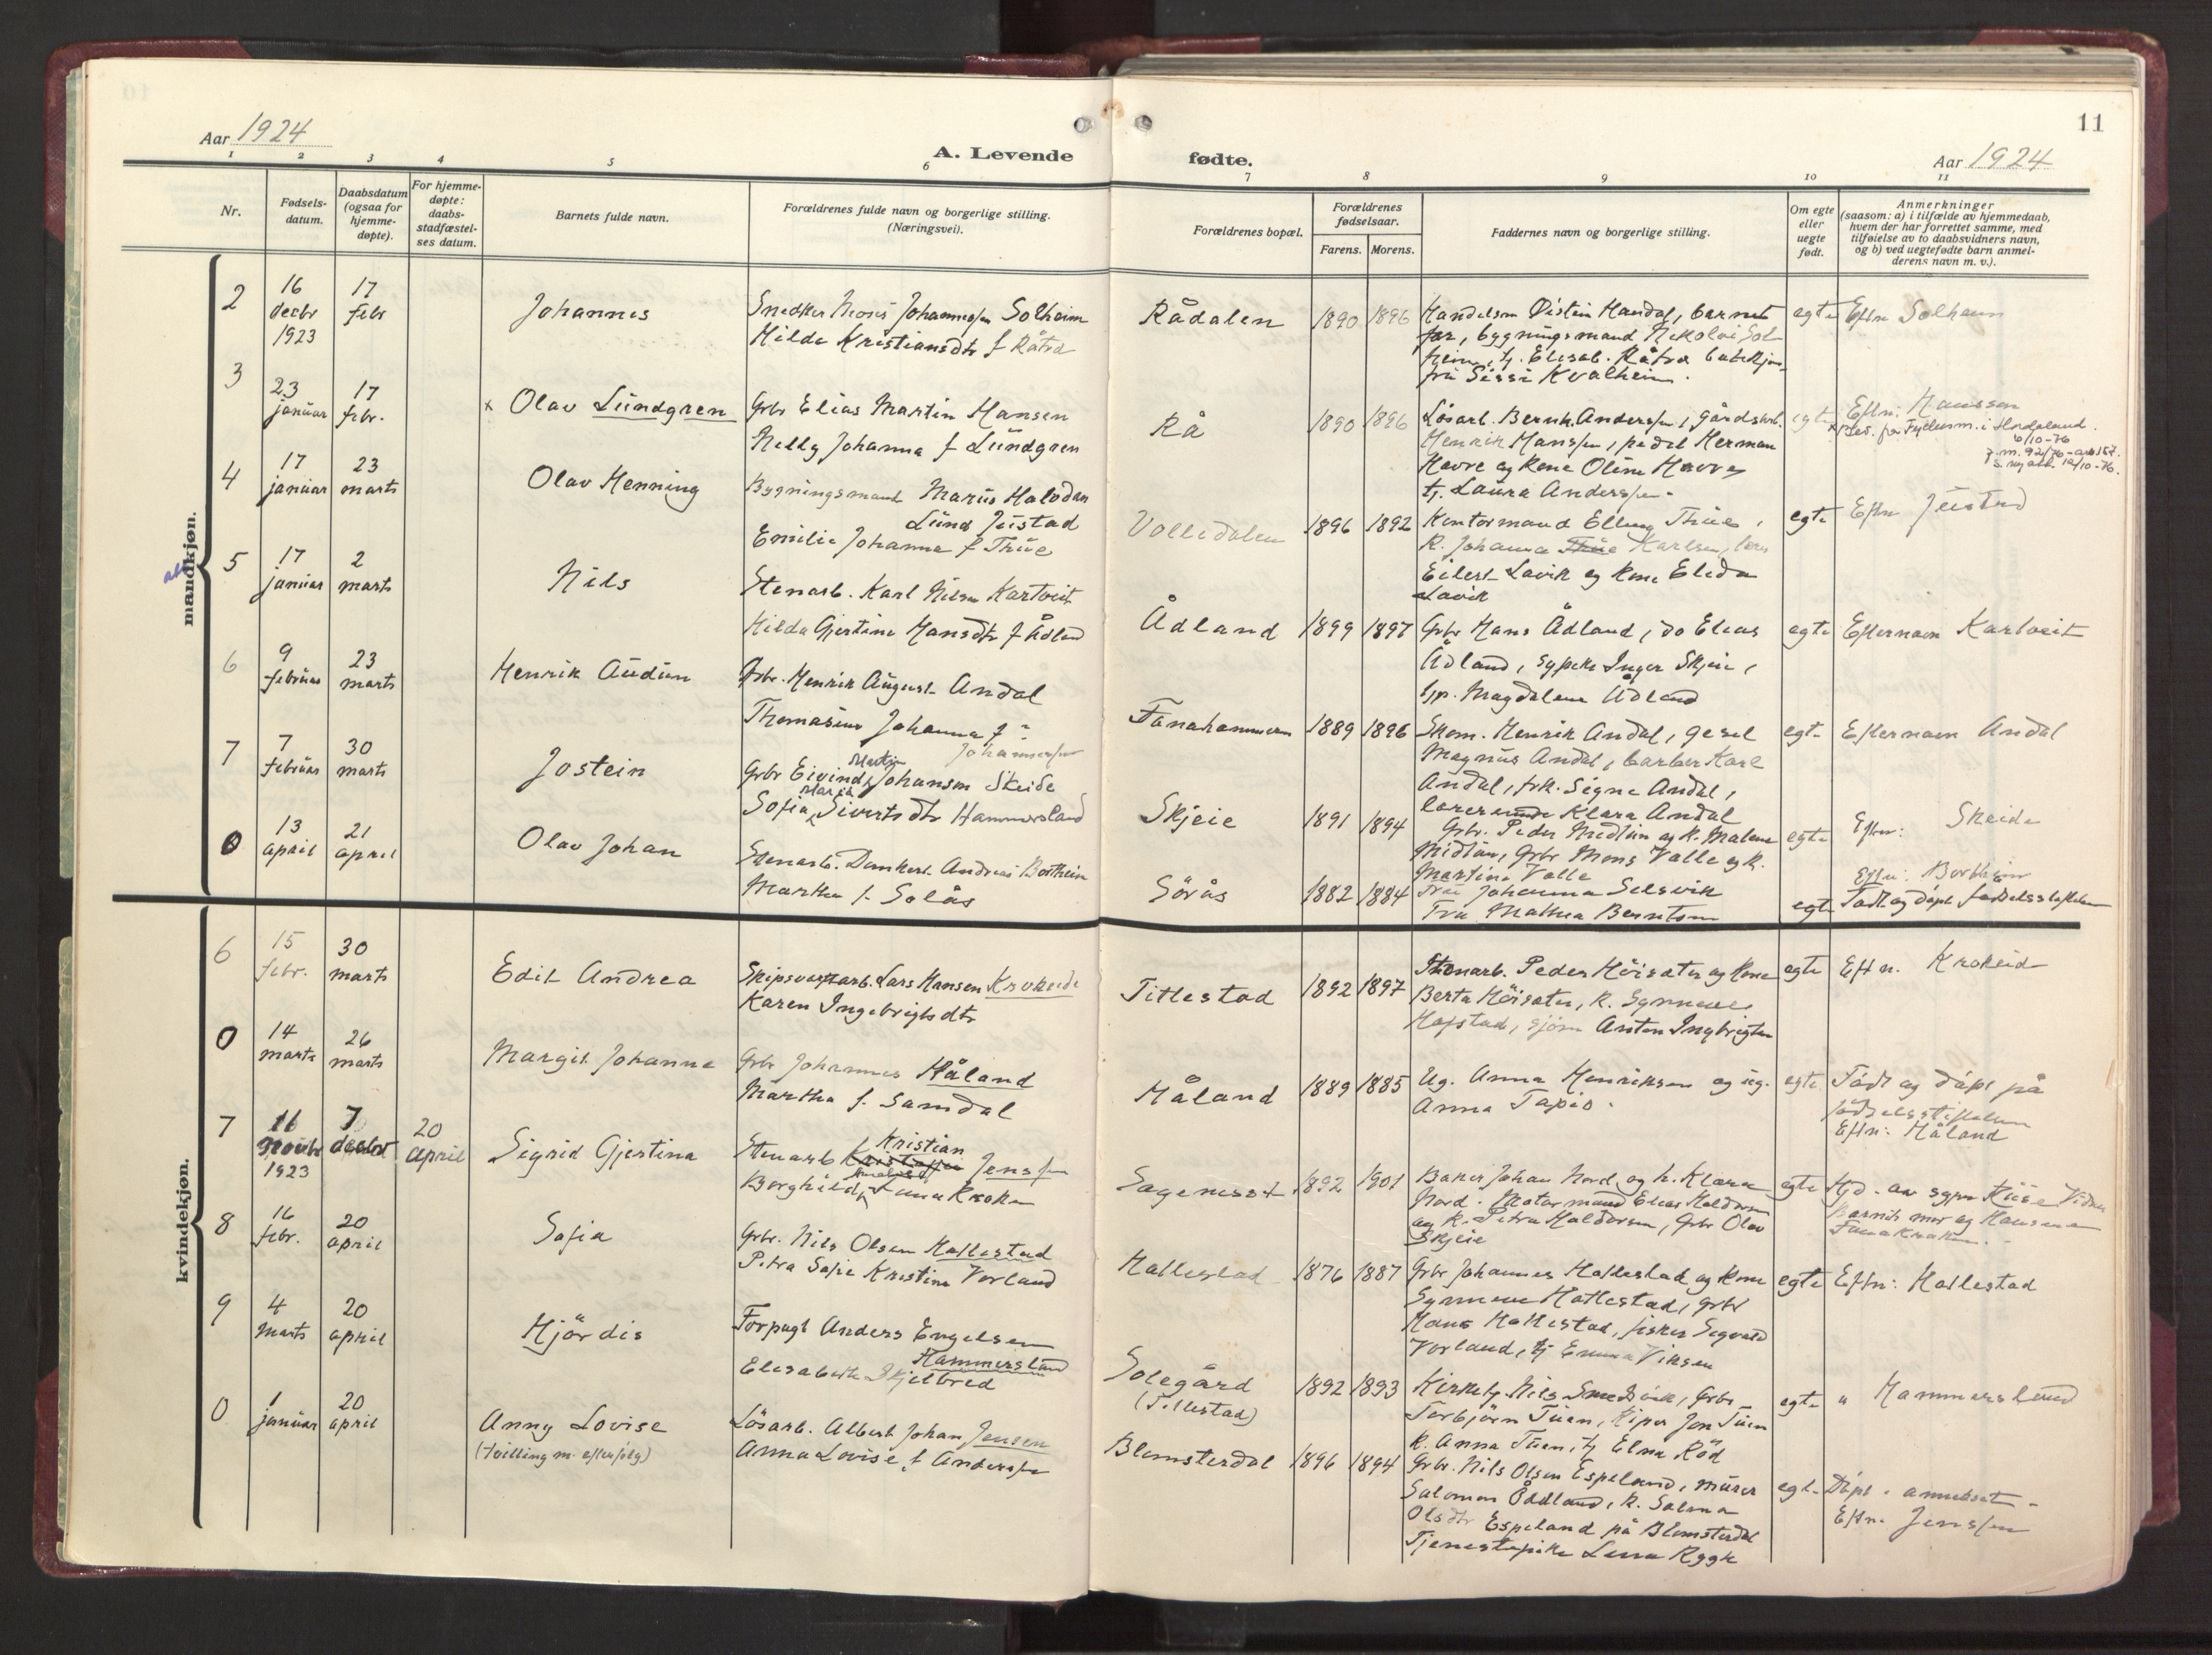 11
Aar 1924
A. Levende
fødte.
Aar 1924
1 2 3 4 5 6 7 8 9 10 11
Nr.
Fødsels-
datum.
Daabsdatum
(ogsaa for
hjemme-
døpte).
For hjemme-
døpte:
daabs-
stadfæstel-
ses datum.
Barnets fulde navn.
Forældrenes fulde navn og borgerlige stilling.
(Næringsvei).
Forældrenes bopæl.
Forældrenes
fødselsaar.
Farens. Morens.
Faddernes navn og borgerlige stilling.
Om egte
eller
uegte
født.
Anmerkninger
(saasom: a) i tilfælde av hjemmedaab,
hvem der har forrettet samme, med
tilføielse av to daabsvidners navn,
og b) ved uegtefødte barn anmel-
derens navn m. v.).
mandkjøn.
2
16
decbr
1923
17
febr
Johannes
Snedker Johannessen Solheim
Hilda Kristiansdtr f Råtra
Rådalen
1890 1896
Handelsm Øistein Handal, barnets
far, bygningsmand Nikolai Sol
heim, tj. Elisab. Råtra
Sissi Kvalheim.
egte
Eftn Solheim
3
23
januar
17
febr.
x Olav Lundgren
Grbr Elias Martin Hansen
Nelly Johanna f Lundgren
Rå
1890 1896
Lösarb. Bernh. Anderssen, gårdsarb.
Henrik Hanssen, pedel Herman
Havre og kone Oline Havre,
tj. Laura Anderssen.
egte
Eftn: Hanssen
x Bev. fra Fylkesm. i Hordaland
6/10-76
4
17
januar
23
marts
Olav Henning
Bygningsmand Marius Halvdan
Lund Justad
Emilie Johanna f Thue
Volledalen
1896 1892
Kontormand Elling Thue,
K. Johanna Thue Karlsen,
Eilert Lavik og kone Elida
Lavik
egte
Eftn Justad
5
17
januar
2
marts
Nils
Stenarb. Karl Nilsen Kartveit
Hilda Gjertine Hansdtr f Ådland
Ådland
1899 1897
Grbr Hans Ådland, do Elias
Ådland, sypike Inger Skjeie,
Magdalene Ådland
egte
Efternavn Kartveit
6
9
februar
23
marts
Henrik Audun
Grbr. Henrik August Andal
Thomasine Johanna f
Johannessen
Fanahammeren
1889 1896
Skom. Henrik Andal,
Magnus Andal, barber Karl
Andal, frk. Signe Andal,
Klara Andal
egte
Efternavn Andal
7
7
februar
30
marts
Jostein
Martin
Grbr Eivind Johansen Skeide
Maria
Sofia Sivertsdtr Hammersland
Skjeie
1891 1894
Grbr. Peder Midtun og k. Malene
Midtun, Grbr Mons Valle og k.
Martina Valle
egte
Eftn: Skeide
0
13
april
21
april
Olav Johan
Stenarb. Dankert Andreas Bortheim
Martha f. Solås
Sörås
1882 1884
Fru Johanna Selsvik
Fru Mathea Berntsen
egte
Eftn: Bortheim
Födt og döpt
kvindekjøn.
6
15
febr.
30
marts
Edit Andrea
Skipsverftarb. Lars Hansen Krokeide
Karen Ingebrigtsdtr
Titlestad
1892 1897
Stenarb. Peder Höisæter og kone
Berta Höisæter, K. Synneve
Hafstad, Anton Ingbrigtsen
egte
Eftn. Krokeid
0
14
marts
26
marts
Margit Johanne
Grbr Johannes Håland
Martha f. Samdal
Håland
1889 1885
Ug. Anna Henriksen og ug.
Anna Tapio.
egte
Födt og döpt på
födselsstiftelsen
Eftn: Håland
7
16
novbr
1923
7
decbr
20
april
Sigrid Gjertina
Kristian
Stenarb Jenssen
Borghild Fana Kroken
1892 1901
Baker Johan Nord og h. Klara
Nord. Motormand Elias Haldorsen
og k. Petra Haldorsen, Grbr Olav
Skjeie
egte
8
16
febr.
20
april
Sofia
Grbr. Nils Olsen Hatlestad
Petra Sofie Kristine Vorland
Hatlestad
1876 1887
Grbr Johannes Hatlestad og kone
Synneve Hatlestad, grbr
Hans Hatlestad, fisker Sigvald
Vorland, tj Emma Viksen
egte
Eftn: Hatlestad
9
4
marts
20
april
Hjördis
Forpagt Anders Engelsen
Hammersland
Elisabeth Skjelbred
Solegård
(Titlestad)
1892 1893
Kirketj. Nils Smedsvik, Grbr
Torbjörn Tuen, Jon Tuen
K. Anna Tuen, tj Elna Röd
egte
" Hammersland
0
1
januar
20
april
Anny Lovise
(tvilling m. efterfölg)
Lösarb. Albert Johan Jensen
Anna Lovise f Anderssen
Blomsterdal
1896 1894
Grbr. Nils Olsen Espeland, murer
Salomon Ådland, K. Salma
Olsdtr Espeland på Blomsterdal
Tjenestepike Lena Rygg
egte
Döpt i annekset -
Eftn. Jenssen